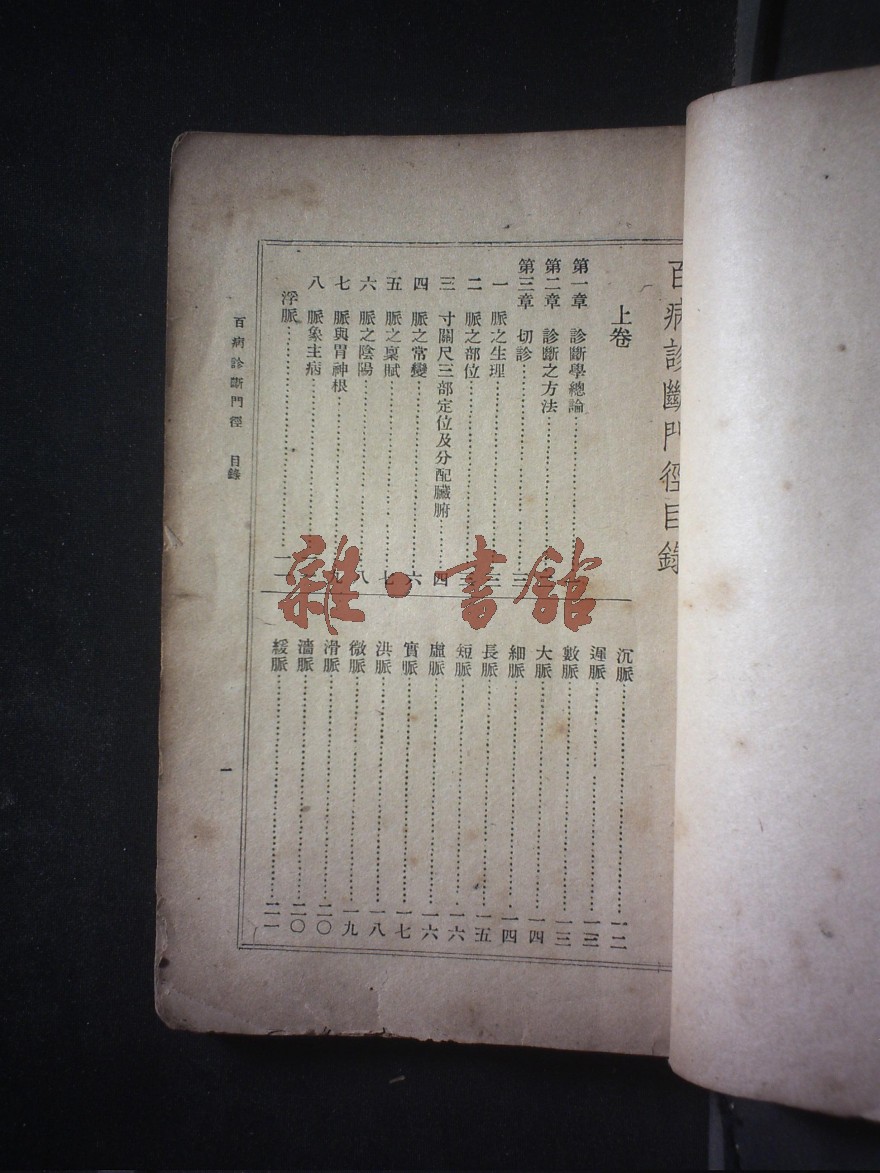 百病診斷門徑目錄
上卷
第一章 診斷學總論
第二章 診斷之方法
第三章 切診……三
一 脈之生理……三
二 脈之部位……三
三 寸關尺三部定位及分配臟腑……四
四 脈之常變……六
五 脈之稟賦……七
六 脈之陰陽……八
七 脈與胃神根……九
八 脈象主病
浮脈……一一
沉脈……一二
遲脈……一三
數脈……一三
大脈……一四
細脈……一四
長脈……一五
短脈……一六
虛脈……一六
實脈……一七
洪脈……一八
微脈……一九
滑脈……二〇
濇脈……二〇
緩脈……二一
百病診斷門徑 目錄
一
雜·書館